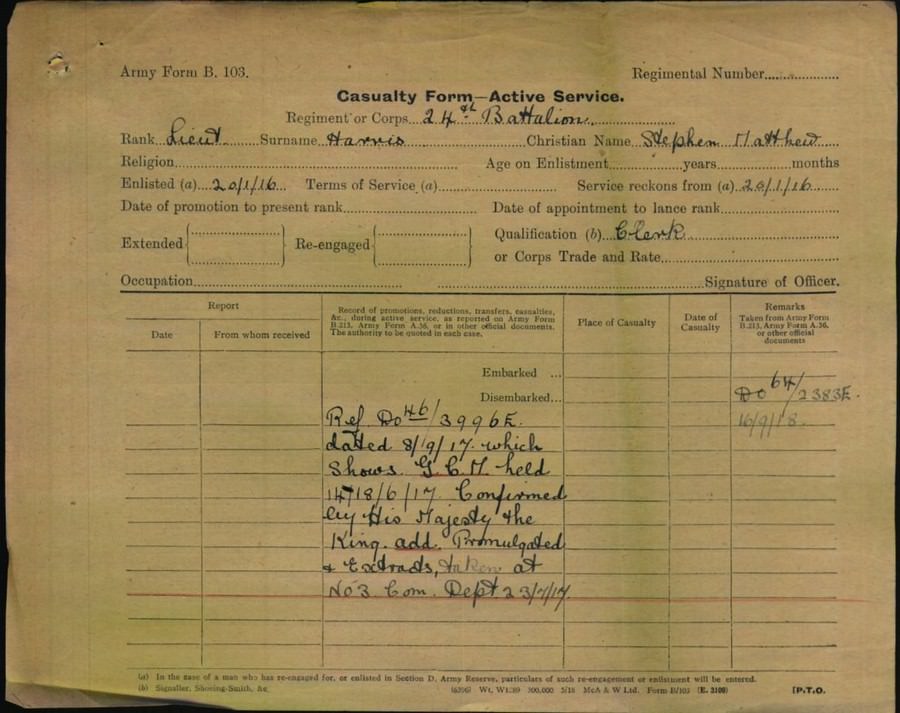 Army Form B. 103.
Regimental Number
Casualty Form—Active Service.
Regiment or Corps 24th Battalion
Rank Lieut Surname Harris Christian Name Stephen Matthew
Religion Age on Enlistment years months
Enlisted (a) 20/1/16 Terms of Service (a) Service reckons from (a) 20/1/16
Date of promotion to present rank Date of appointment to lance rank
Extended Re-engaged Qualification (b) Clerk
or Corps Trade and Rate
Occupation Signature of Officer.
Report
Date
From whom received
Record of promotions, reductions, transfers, casualties,
&c., during active service, as reported on Army Form
B.213, Army Form A.36, or in other official documents.
The authority to be quoted in each case.
Place of Casualty
Date of
Casualty
Remarks
Taken from Army Form
B.213, Army Form A.36,
or other official
documents
Embarked ...
Disembarked...
DO 64/2383E.
16/9/18.
Ref DO 46/3996E.
dated 8/9/17 which
Shows G.C.M. held
14/18/6/17 Confirmed
by His Majesty the
King. add. Promulgated
& Extracts, taken at
No 3 Com. Dept. 23/7/17
(a) In the case of a man who has re-engaged for, or enlisted in Section D, Army Reserve, particulars of such re-engagement or enlistment will be entered.
(b) Signaller, Shoeing-Smith, &c.
Wt. 300,000 5/18 McA & W Ltd. Form B/103 (E. 3109)
[P.T.O.